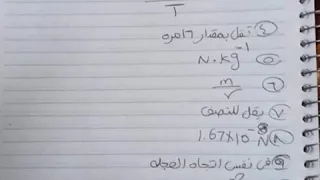 T
٤ تقل بمقدار ١٦ مره
٥ N.kg⁻¹
٦ m/r
٧ يقل للنصف
٨ 1.67×10⁻⁸ N
٩ في نفس اتجاه العجله